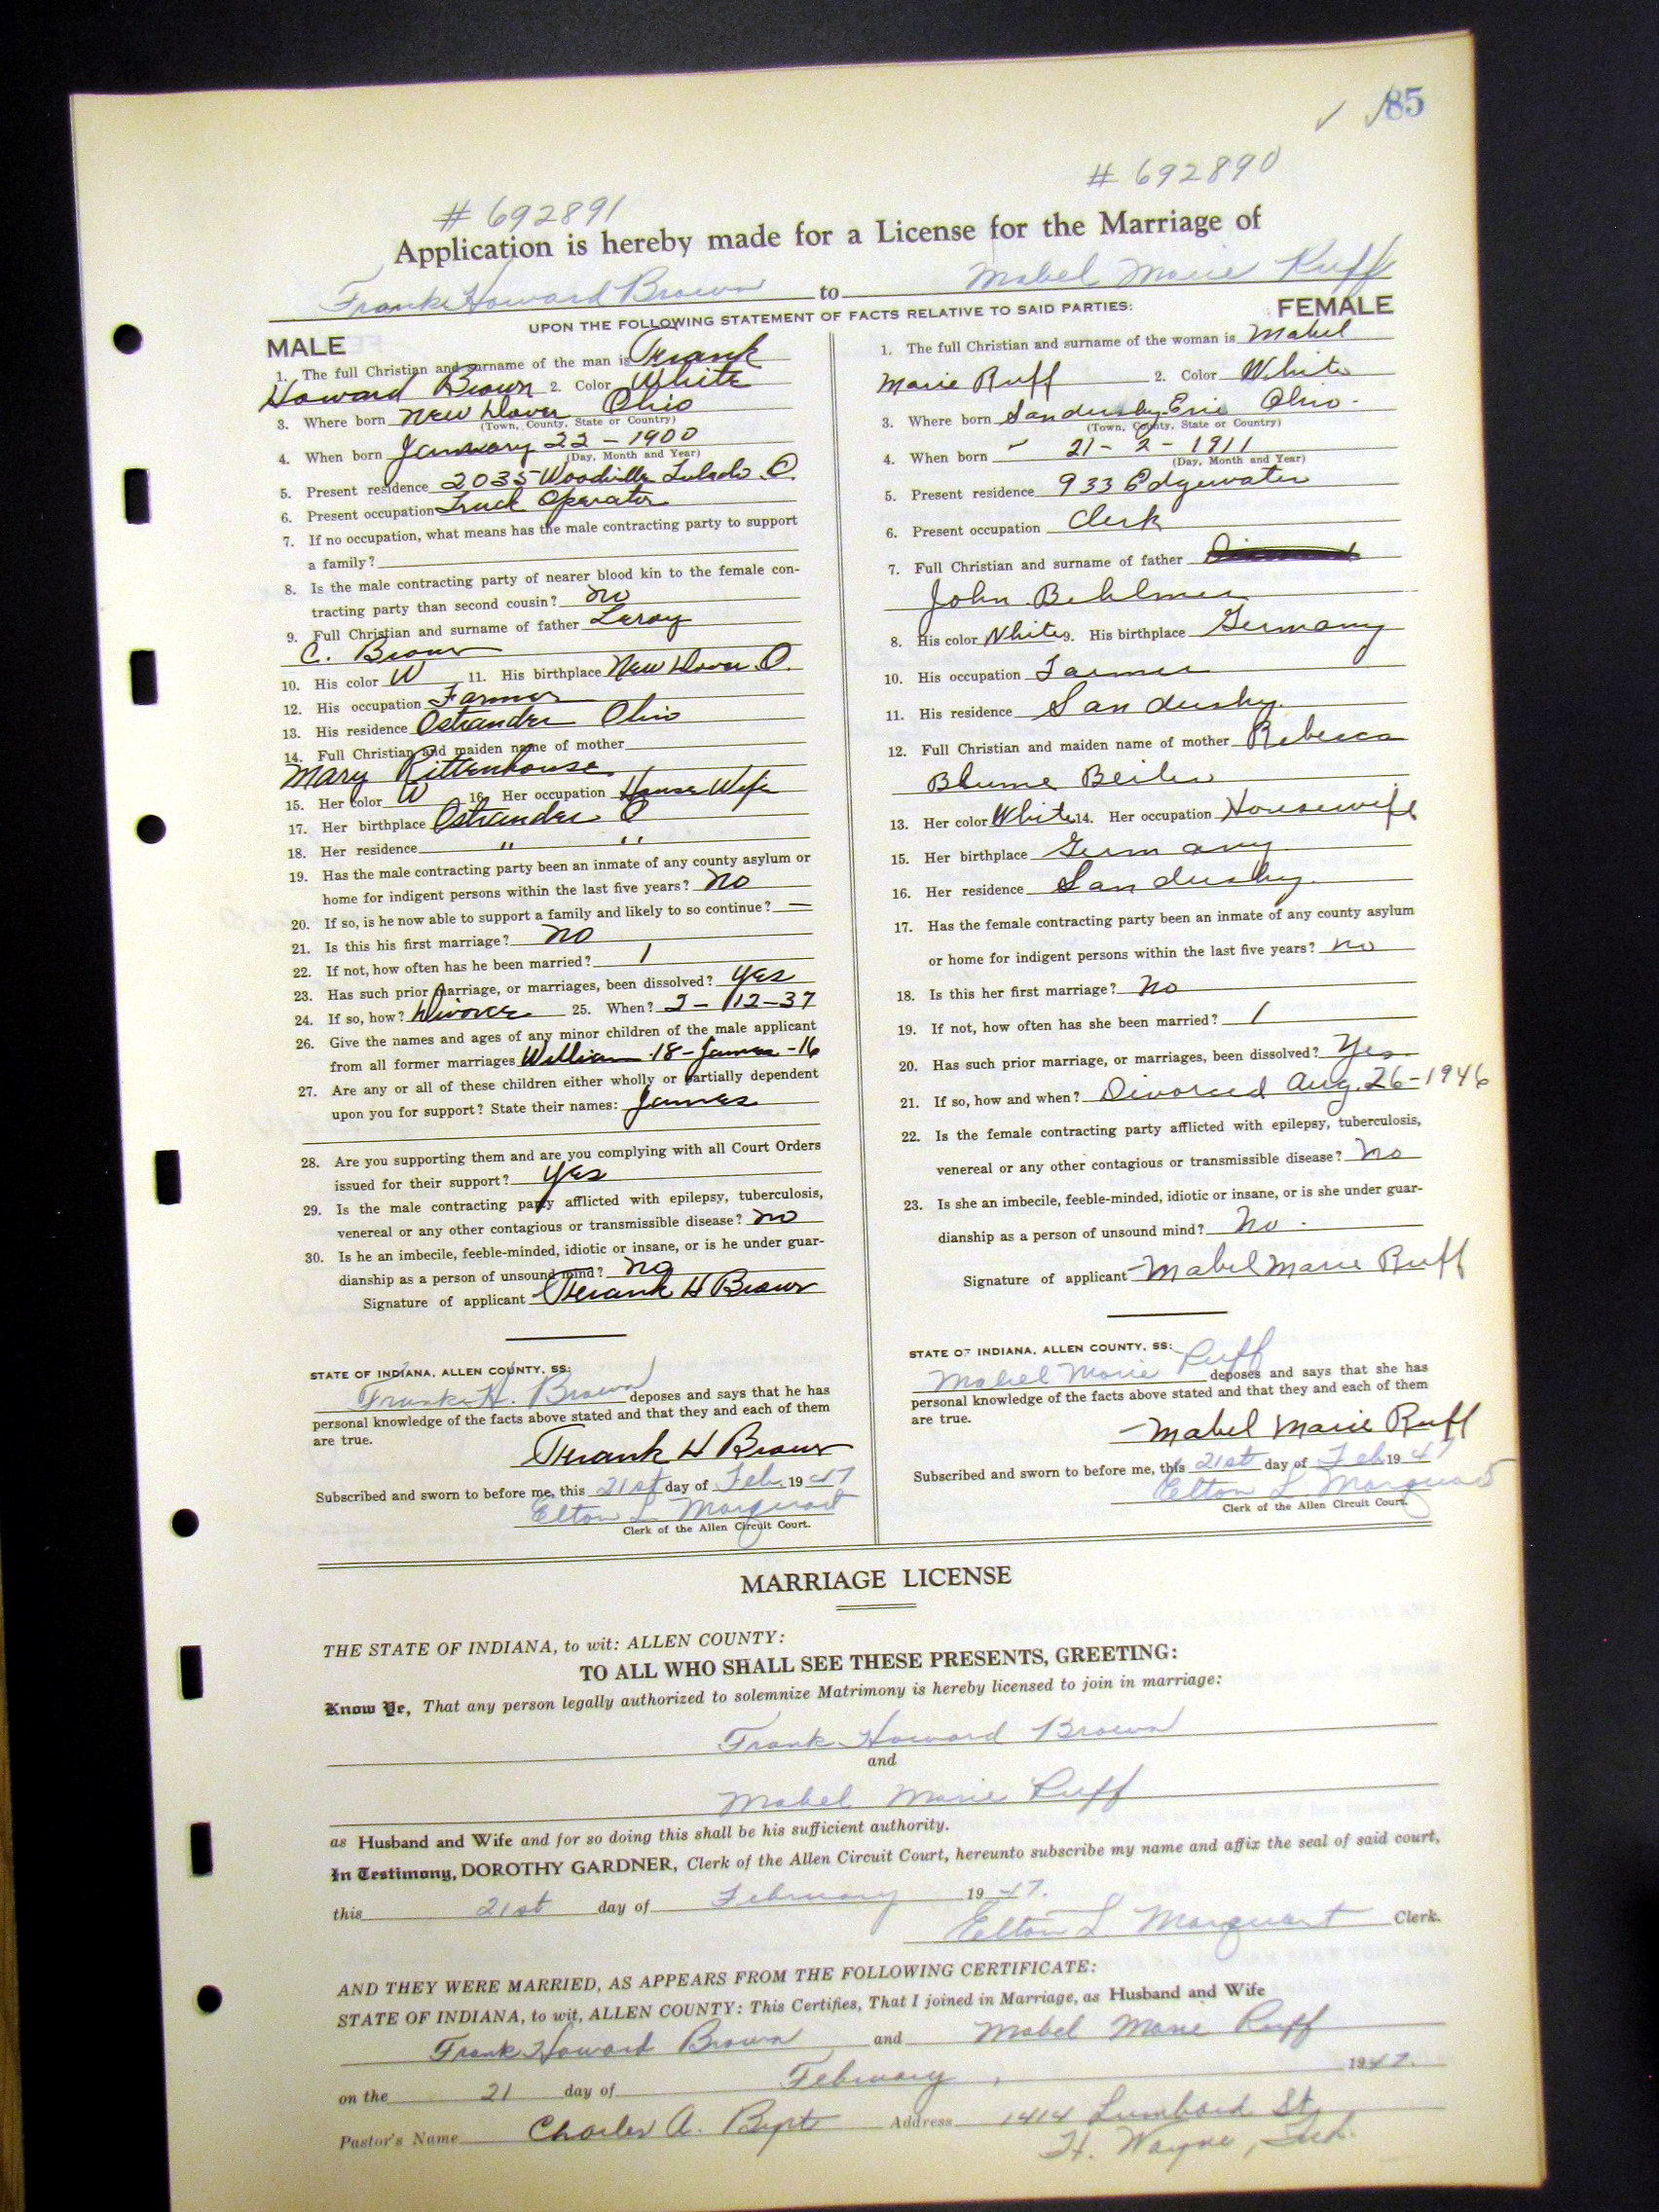 85
# 692890
# 692891
Application is hereby made for a License for the Marriage of
Frank Howard Brown to Mabel Marie Ruff
UPON THE FOLLOWING STATEMENT OF FACTS RELATIVE TO SAID PARTIES:
MALE
1. The full Christian and surname of the man is Frank
Howard Brown 2. Color White
3. Where born New Dover Ohio
(Town, County, State or Country)
4. When born January 22 - 1900
(Day, Month and Year)
5. Present residence 2035 Woodville Toledo. O.
6. Present occupation Truck Operator
7. If no occupation, what means has the male contracting party to support
a family?
8. Is the male contracting party of nearer blood kin to the female con-
tracting party than second cousin? no
9. Full Christian and surname of father Leroy
C. Brown
10. His color W 11. His birthplace New Dover O.
12. His occupation Farmer
13. His residence Ostrander Ohio
14. Full Christian and maiden name of mother
Mary Rittenhouse
15. Her color W 16. Her occupation House Wife
17. Her birthplace Ostrander O
18. Her residence " "
19. Has the male contracting party been an inmate of any county asylum or
home for indigent persons within the last five years? no
20. If so, is he now able to support a family and likely to so continue? —
21. Is this his first marriage? no
22. If not, how often has he been married? 1
23. Has such prior marriage, or marriages, been dissolved? yes
24. If so, how? Divorce 25. When? 2-12-37
26. Give the names and ages of any minor children of the male applicant
from all former marriages William 18 - James - 16
27. Are any or all of these children either wholly or partially dependent
upon you for support? State their names: James
28. Are you supporting them and are you complying with all Court Orders
issued for their support? yes
29. Is the male contracting party afflicted with epilepsy, tuberculosis,
venereal or any other contagious or transmissible disease? no
30. Is he an imbecile, feeble-minded, idiotic or insane, or is he under guar-
dianship as a person of unsound mind? no
Signature of applicant Frank H Brown
STATE OF INDIANA, ALLEN COUNTY, SS:
Frank H. Brown deposes and says that he has
personal knowledge of the facts above stated and that they and each of them
are true.
Frank H Brown
Subscribed and sworn to before me, this 21st day of Feb. 1947
Elton L. Marquart
Clerk of the Allen Circuit Court.
FEMALE
1. The full Christian and surname of the woman is Mabel
Marie Ruff 2. Color White
3. Where born Sandusky Erie Ohio.
(Town, County, State or Country)
4. When born 21 - 2 - 1911
(Day, Month and Year)
5. Present residence 933 Edgewater
6. Present occupation Clerk
7. Full Christian and surname of father
John Behlmer
8. His color White 9. His birthplace Germany
10. His occupation Farmer
11. His residence Sandusky.
12. Full Christian and maiden name of mother Rebecca
Blume
13. Her color White 14. Her occupation Housewife
15. Her birthplace Germany
16. Her residence Sandusky.
17. Has the female contracting party been an inmate of any county asylum
or home for indigent persons within the last five years? no
18. Is this her first marriage? No
19. If not, how often has she been married? 1
20. Has such prior marriage, or marriages, been dissolved? Yes
21. If so, how and when? Divorced Aug. 26-1946
22. Is the female contracting party afflicted with epilepsy, tuberculosis,
venereal or any other contagious or transmissible disease? No
23. Is she an imbecile, feeble-minded, idiotic or insane, or is she under guar-
dianship as a person of unsound mind? No.
Signature of applicant Mabel Marie Ruff
STATE OF INDIANA, ALLEN COUNTY, SS:
Mabel Marie Ruff deposes and says that she has
personal knowledge of the facts above stated and that they and each of them
are true.
Mabel Marie Ruff
Subscribed and sworn to before me, this 21st day of Feb 1947
Elton L. Marquart
Clerk of the Allen Circuit Court.
MARRIAGE LICENSE
THE STATE OF INDIANA, to wit: ALLEN COUNTY:
TO ALL WHO SHALL SEE THESE PRESENTS, GREETING:
Know Ye, That any person legally authorized to solemnize Matrimony is hereby licensed to join in marriage:
Frank Howard Brown
and
Mabel Marie Ruff
as Husband and Wife and for so doing this shall be his sufficient authority.
In Testimony, DOROTHY GARDNER, Clerk of the Allen Circuit Court, hereunto subscribe my name and affix the seal of said court,
this 21st day of February 1947.
Elton L. Marquart Clerk.
AND THEY WERE MARRIED, AS APPEARS FROM THE FOLLOWING CERTIFICATE:
STATE OF INDIANA, to wit, ALLEN COUNTY: This Certifies, That I joined in Marriage, as Husband and Wife
Frank Howard Brown and Mabel Marie Ruff
on the 21 day of February, 1947.
Pastor's Name Charles A. Address 1414 Lumbard St.
Ft. Wayne, Ind.